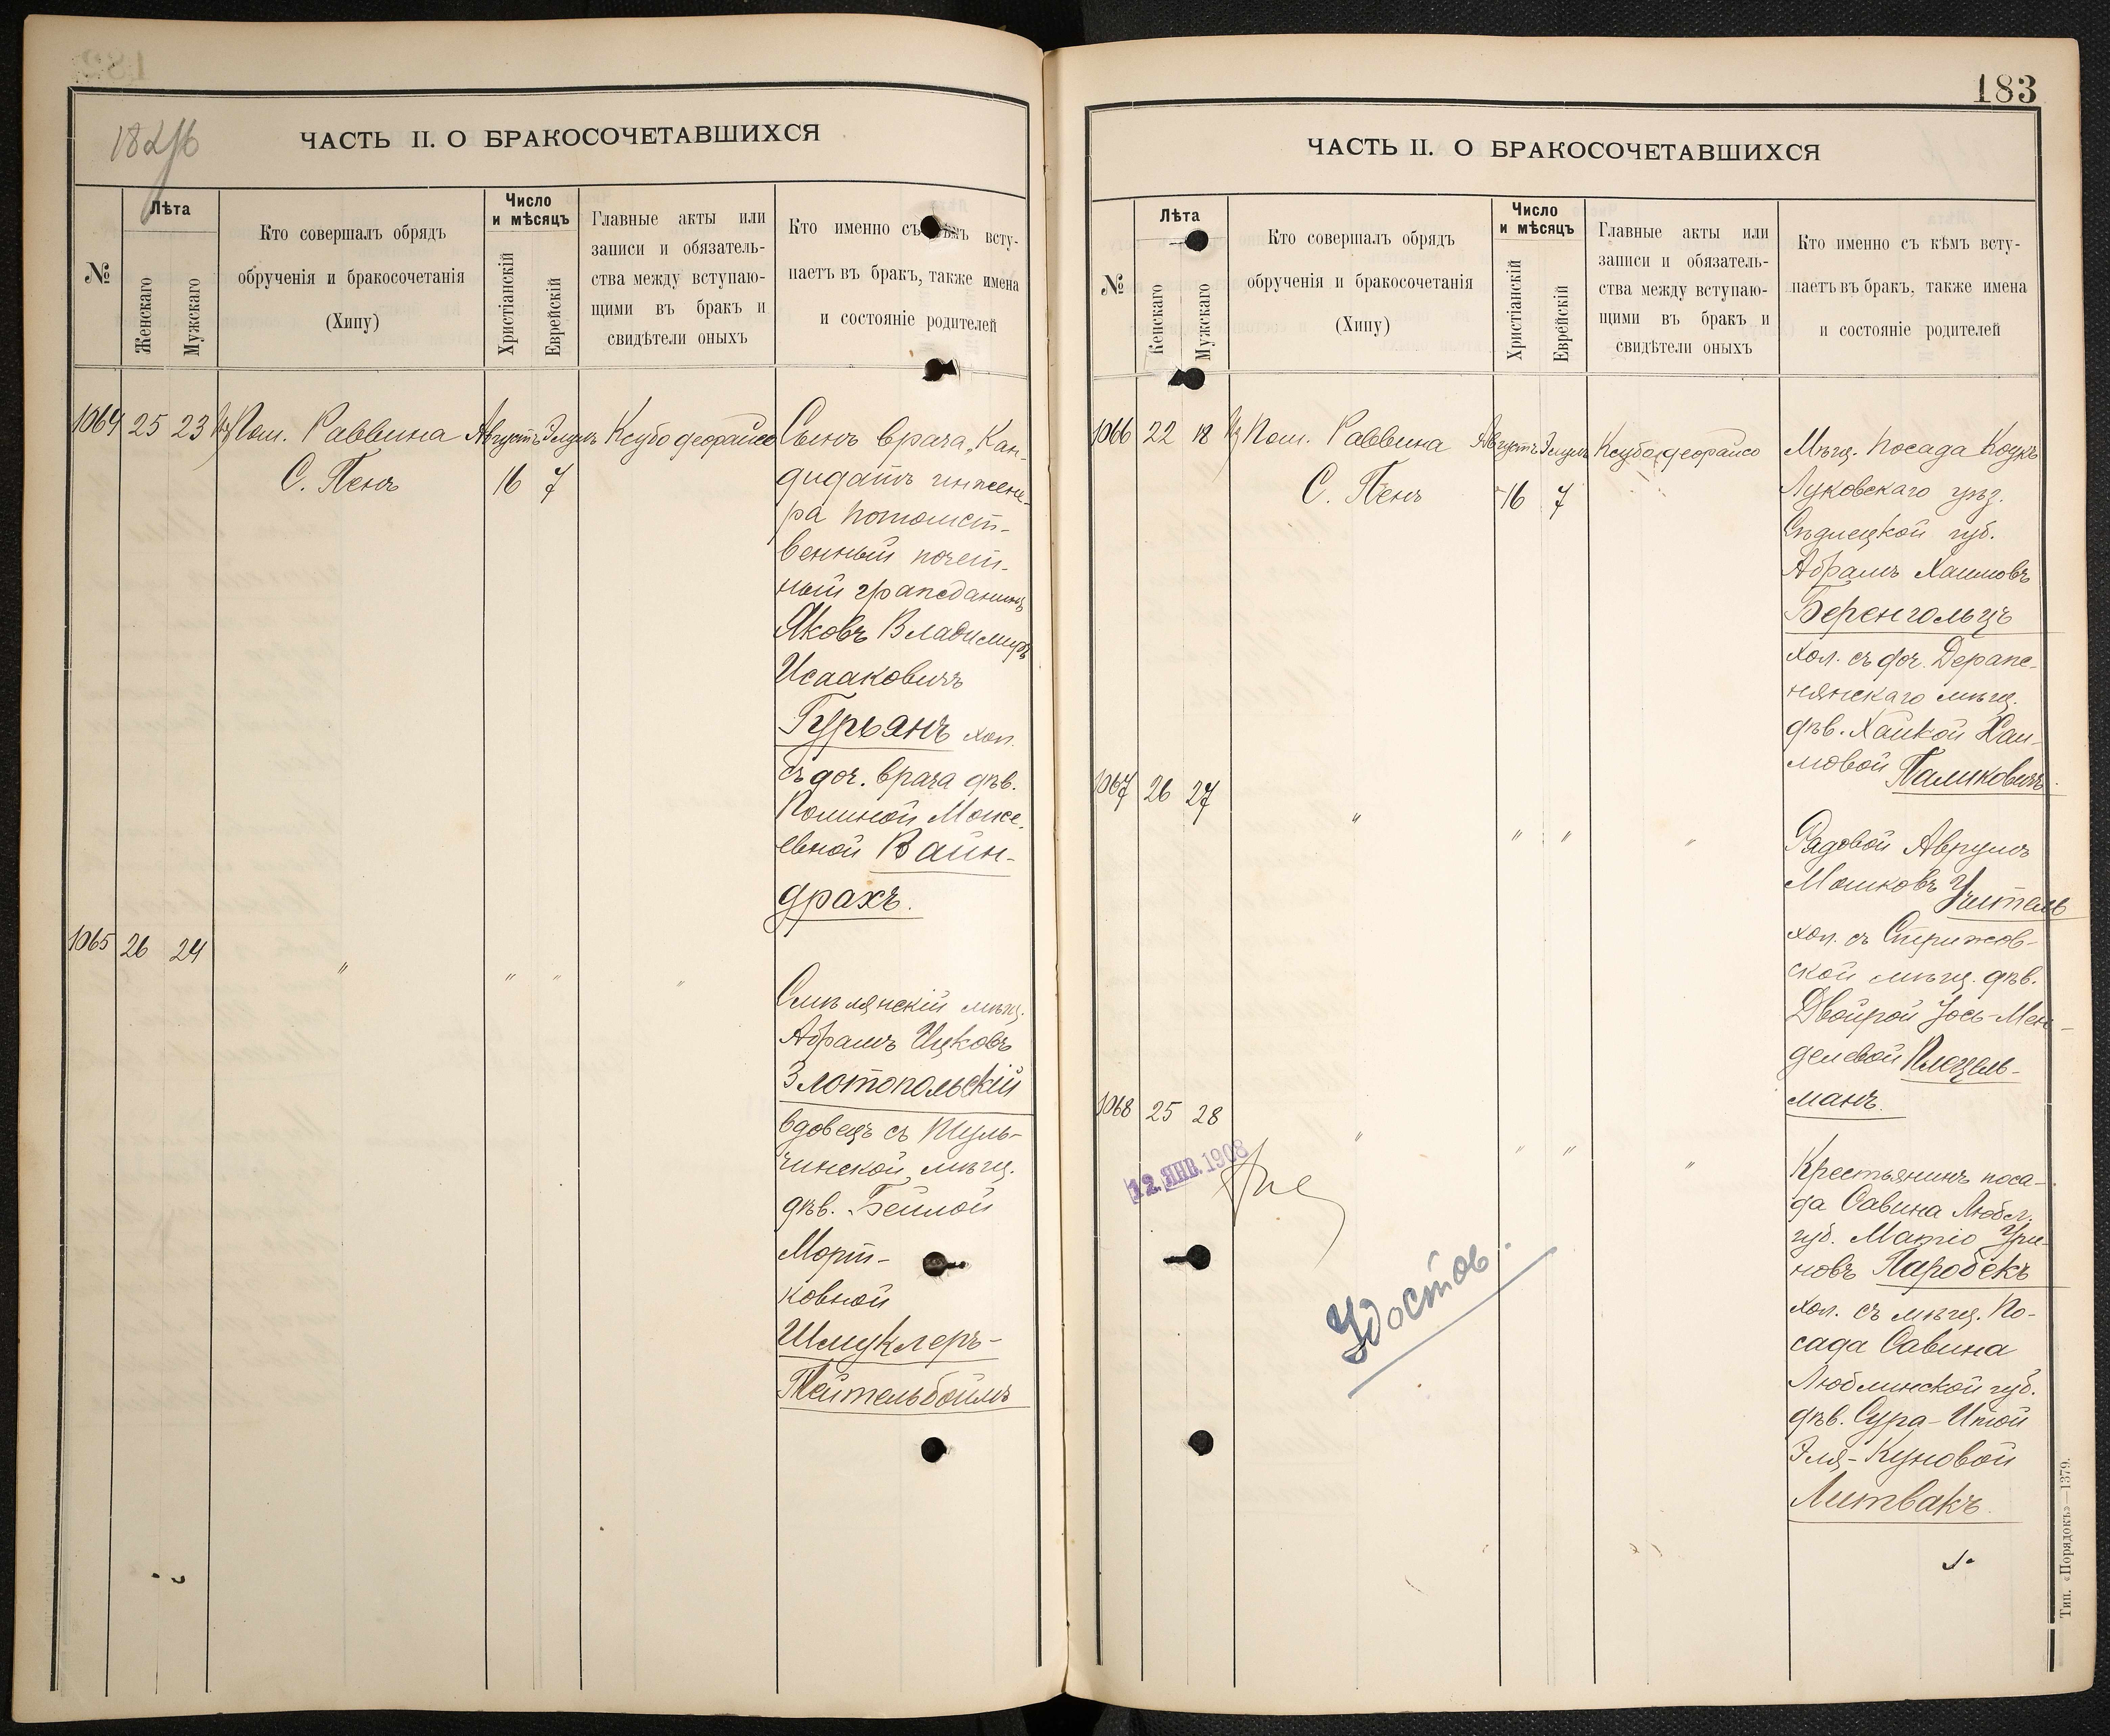 182 об
ЧАСТЬ II. О БРАКОСОЧЕТАВШИХСЯ
№
Лѣта
Женскаго
Мужскаго
Кто совершалъ обрядъ
обрученія и бракосочетанія
(Хипу)
Число
и мѣсяцъ
Христіанскій
Еврейскій
Главные акты или
записи и обязатель-
ства между вступаю-
щими въ бракъ и
свидѣтели оныхъ
Кто именно съ кѣмъ всту-
паетъ въ бракъ, также имена
и состояніе родителей
1064 25 23 Пом. Раввина Августъ Элулъ Ксубо деорайсо
С. Пенъ 16 7
Сынъ врача, Кан-
дидатъ инжене-
ра потомст-
венный почет-
ный гражданинъ
Яковъ Владиміръ
Исааковичъ
Гурьянъ хол.
съ доч. врача дѣв.
Полиной Моисе-
евной Вайн-
драхъ.
1065 26 24 " " " "
Смѣлянскій мѣщ.
Абрамъ Ицковъ
Златопольскій
вдовецъ съ Туль-
чинской мѣщ.
дѣв. Бейлой
Морт-
ковной
Шмуклеръ-
Тейтельбоймъ
183
ЧАСТЬ II. О БРАКОСОЧЕТАВШИХСЯ
№
Лѣта
Женскаго
Мужскаго
Кто совершалъ обрядъ
обрученія и бракосочетанія
(Хипу)
Число
и мѣсяцъ
Христіанскій
Еврейскій
Главные акты или
записи и обязатель-
ства между вступаю-
щими въ бракъ и
свидѣтели оныхъ
Кто именно съ кѣмъ всту-
паетъ въ бракъ, также имена
и состояніе родителей
1066 22 18 Пом. Раввина Августъ Элулъ Ксубо деорайсо
С. Пенъ 16 7
Мѣщ. посада Коцкъ
Луковскаго уѣз.
Сѣдлецкой губ.
Абрамъ Хаимовъ
Беренгольцъ
хол. съ доч. Дераж-
нянскаго мѣщ.
дѣв. Хайкой Хаи-
мовой Паликовичъ.
1067 26 27 " " " "
Рядовой Аврумъ
Мошковъ Учитель
хол. съ Стрижов-
ской мѣщ. дѣв.
Двойрой Іось-Мен-
делевой Плецель-
манъ.
1068 25 28 " " " "
12. ЯНВ. 1908
Крестьянинъ поса-
да Савина Любл.
губ. Матіо Ури-
новъ Паробекъ
хол. съ мѣщ. По-
сада Савина
Люблинской губ.
дѣв. Сура-Итой
Эля-Куновой
Литвакъ.
Удостов.
Тип. «Порядокъ»—1379.